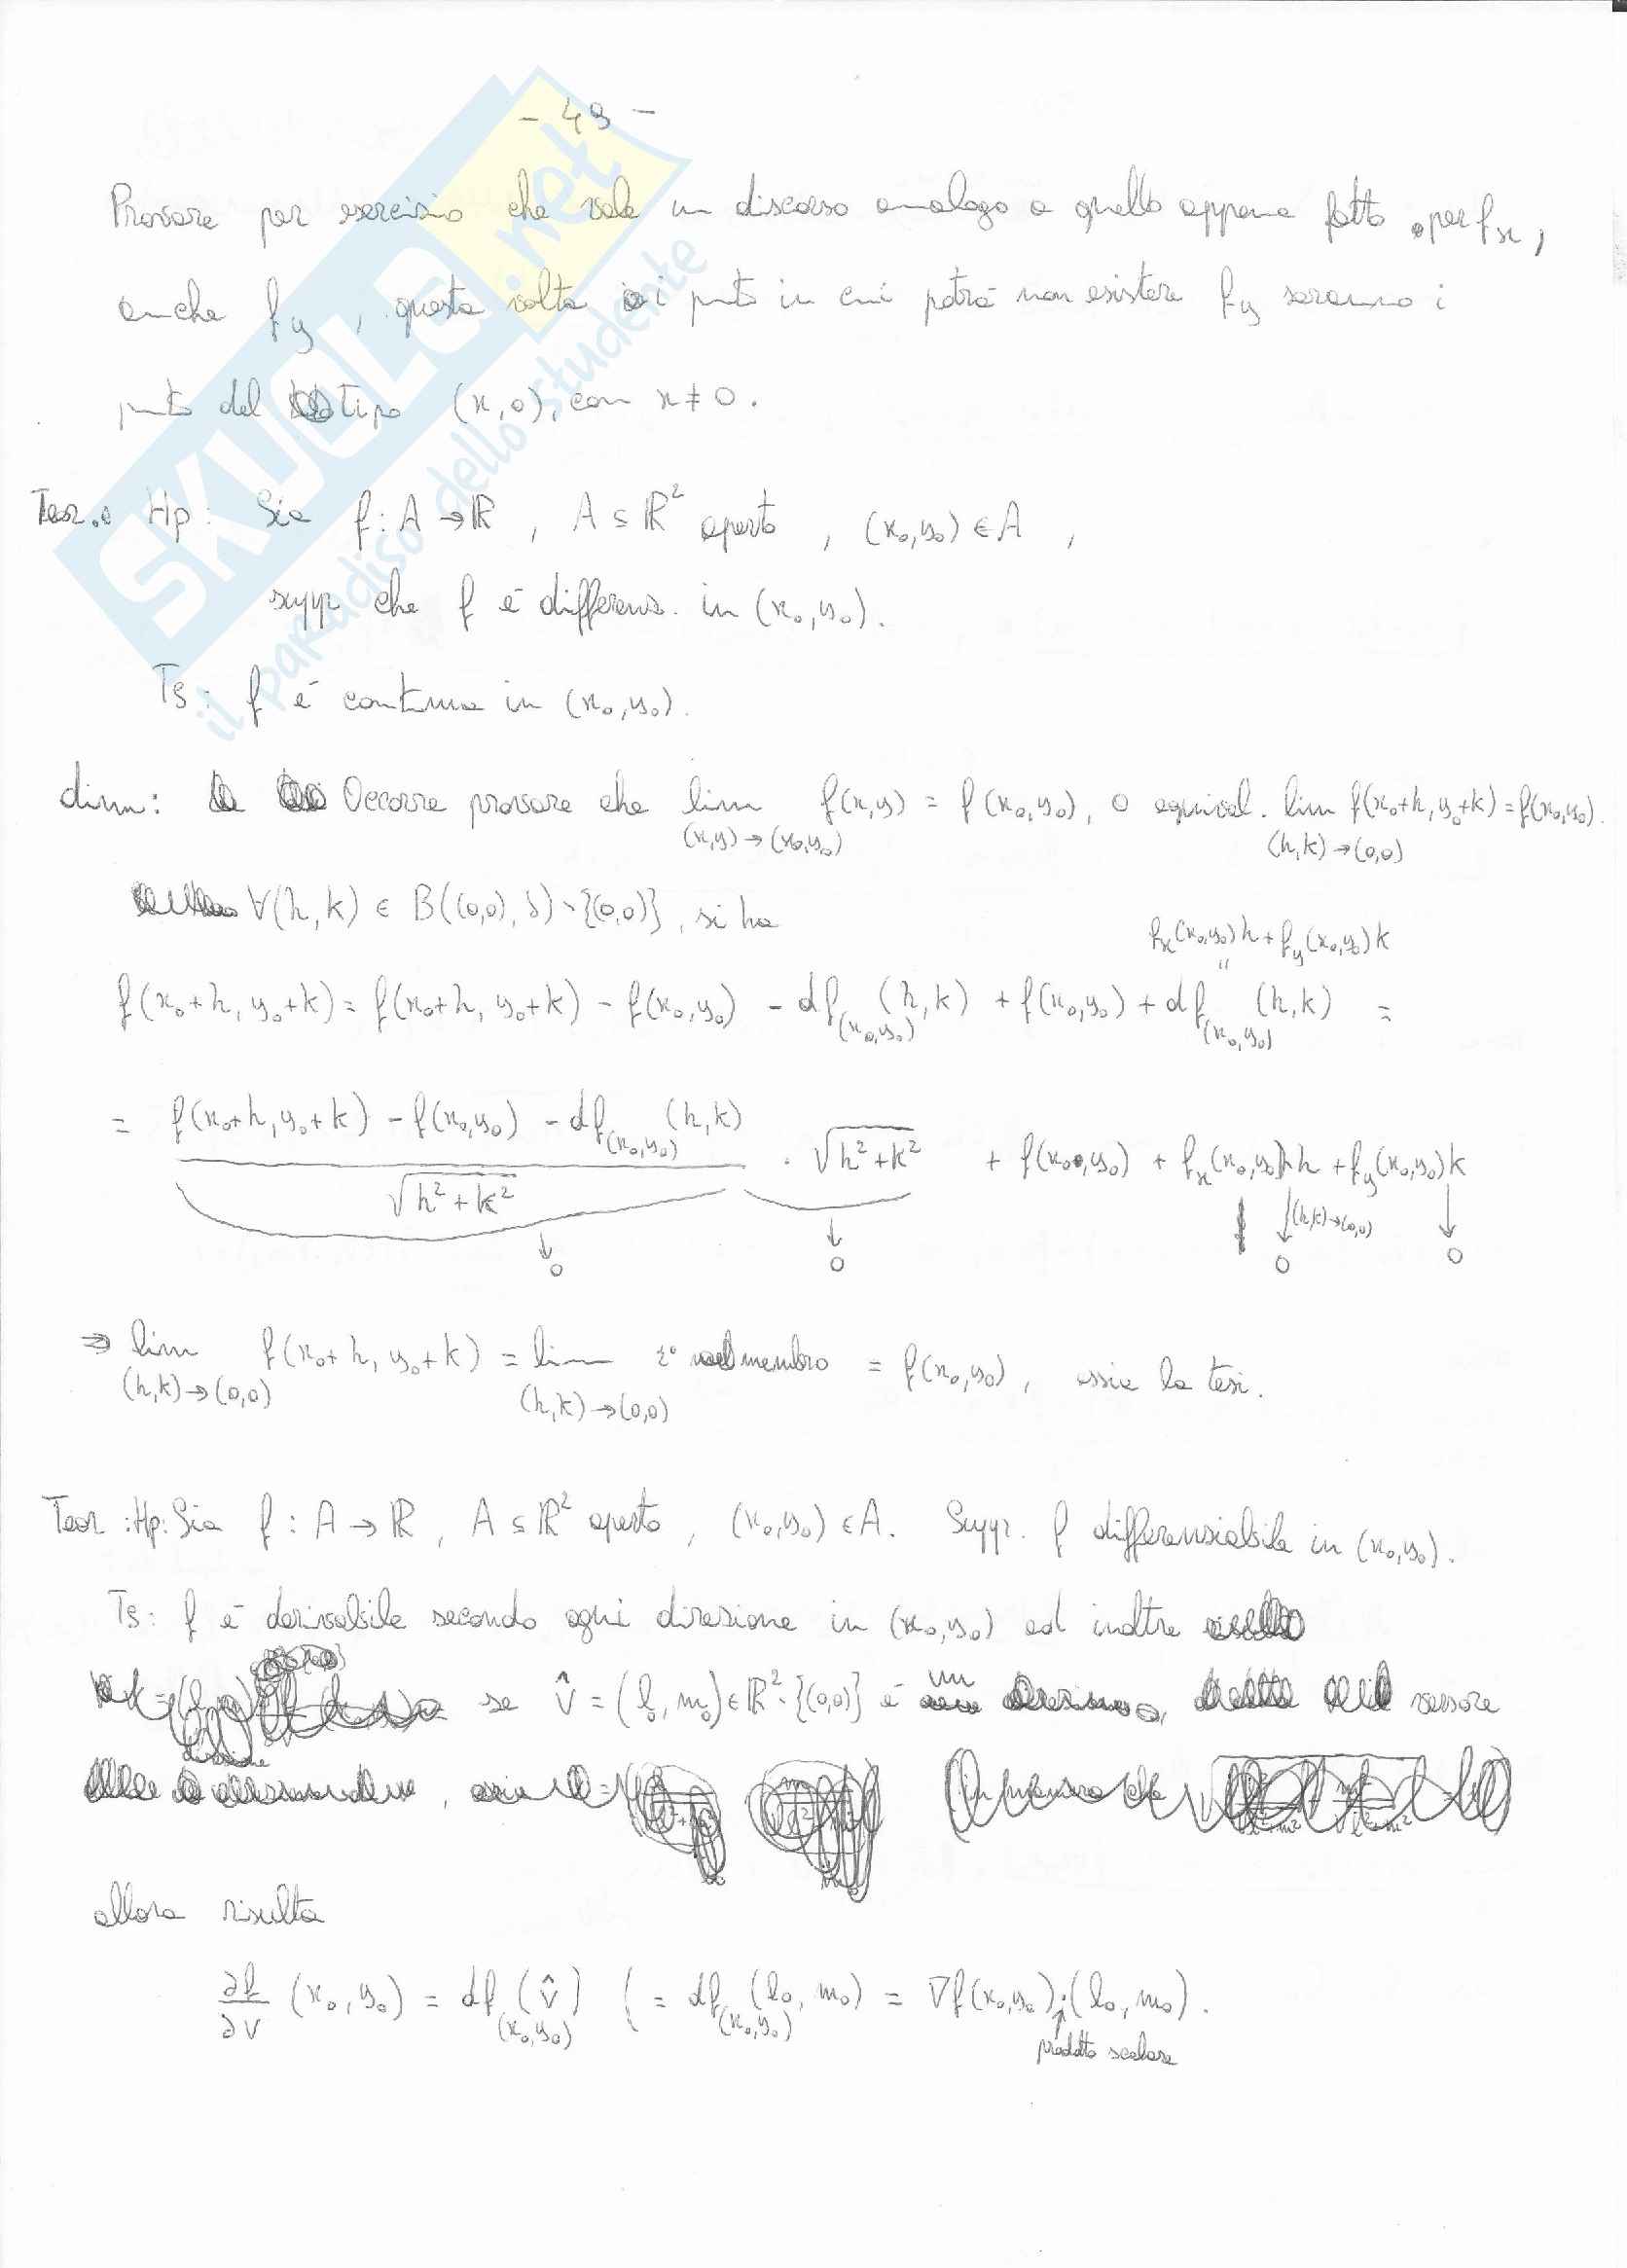 - 49 -
Provare per esercizio che vale un discorso analogo a quello appena fatto per fx,
anche fy, questa volta i punti in cui potrà non esistere fy saranno i
punti del tipo (x,0), con x ≠ 0.
Teor. Hp: Sia f: A → ℝ, A ⊆ ℝ² aperto, (x₀,y₀) ∈ A,
supp. che f è differenz. in (x₀,y₀).
Ts: f è continua in (x₀,y₀).
dim: Occorre provare che lim f(x,y) = f(x₀,y₀), o equival. lim f(x₀+h, y₀+k) = f(x₀,y₀).
(x,y)→(x₀,y₀) (h,k)→(0,0)
∀(h,k) ∈ B((0,0), δ) \ {(0,0)}, si ha
fx(x₀,y₀)h + fy(x₀,y₀)k
"
f(x₀+h, y₀+k) = f(x₀+h, y₀+k) - f(x₀,y₀) - df(x₀,y₀)(h,k) + f(x₀,y₀) + df(x₀,y₀)(h,k) =
= f(x₀+h, y₀+k) - f(x₀,y₀) - df(x₀,y₀)(h,k) / √h²+k² · √h²+k² + f(x₀,y₀) + fx(x₀,y₀)h + fy(x₀,y₀)k
↓ ↓ ↓(h,k)→(0,0) ↓
0 0 0 0
⇒ lim f(x₀+h, y₀+k) = lim 2° membro = f(x₀,y₀), ossia la tesi.
(h,k)→(0,0) (h,k)→(0,0)
Teor: Hp: Sia f: A → ℝ, A ⊆ ℝ² aperto, (x₀,y₀) ∈ A. Supp. f differenziabile in (x₀,y₀).
Ts: f è derivabile secondo ogni direzione in (x₀,y₀) ed inoltre
se v̂ = (l₀, m₀) ∈ ℝ² \ {(0,0)} è un versore
allora risulta
∂f/∂v (x₀,y₀) = df(x₀,y₀)(v̂) ( = df(x₀,y₀)(l₀, m₀) = ∇f(x₀,y₀) · (l₀, m₀).
prodotto scalare
SKUOLA.net
il paradiso dello studente